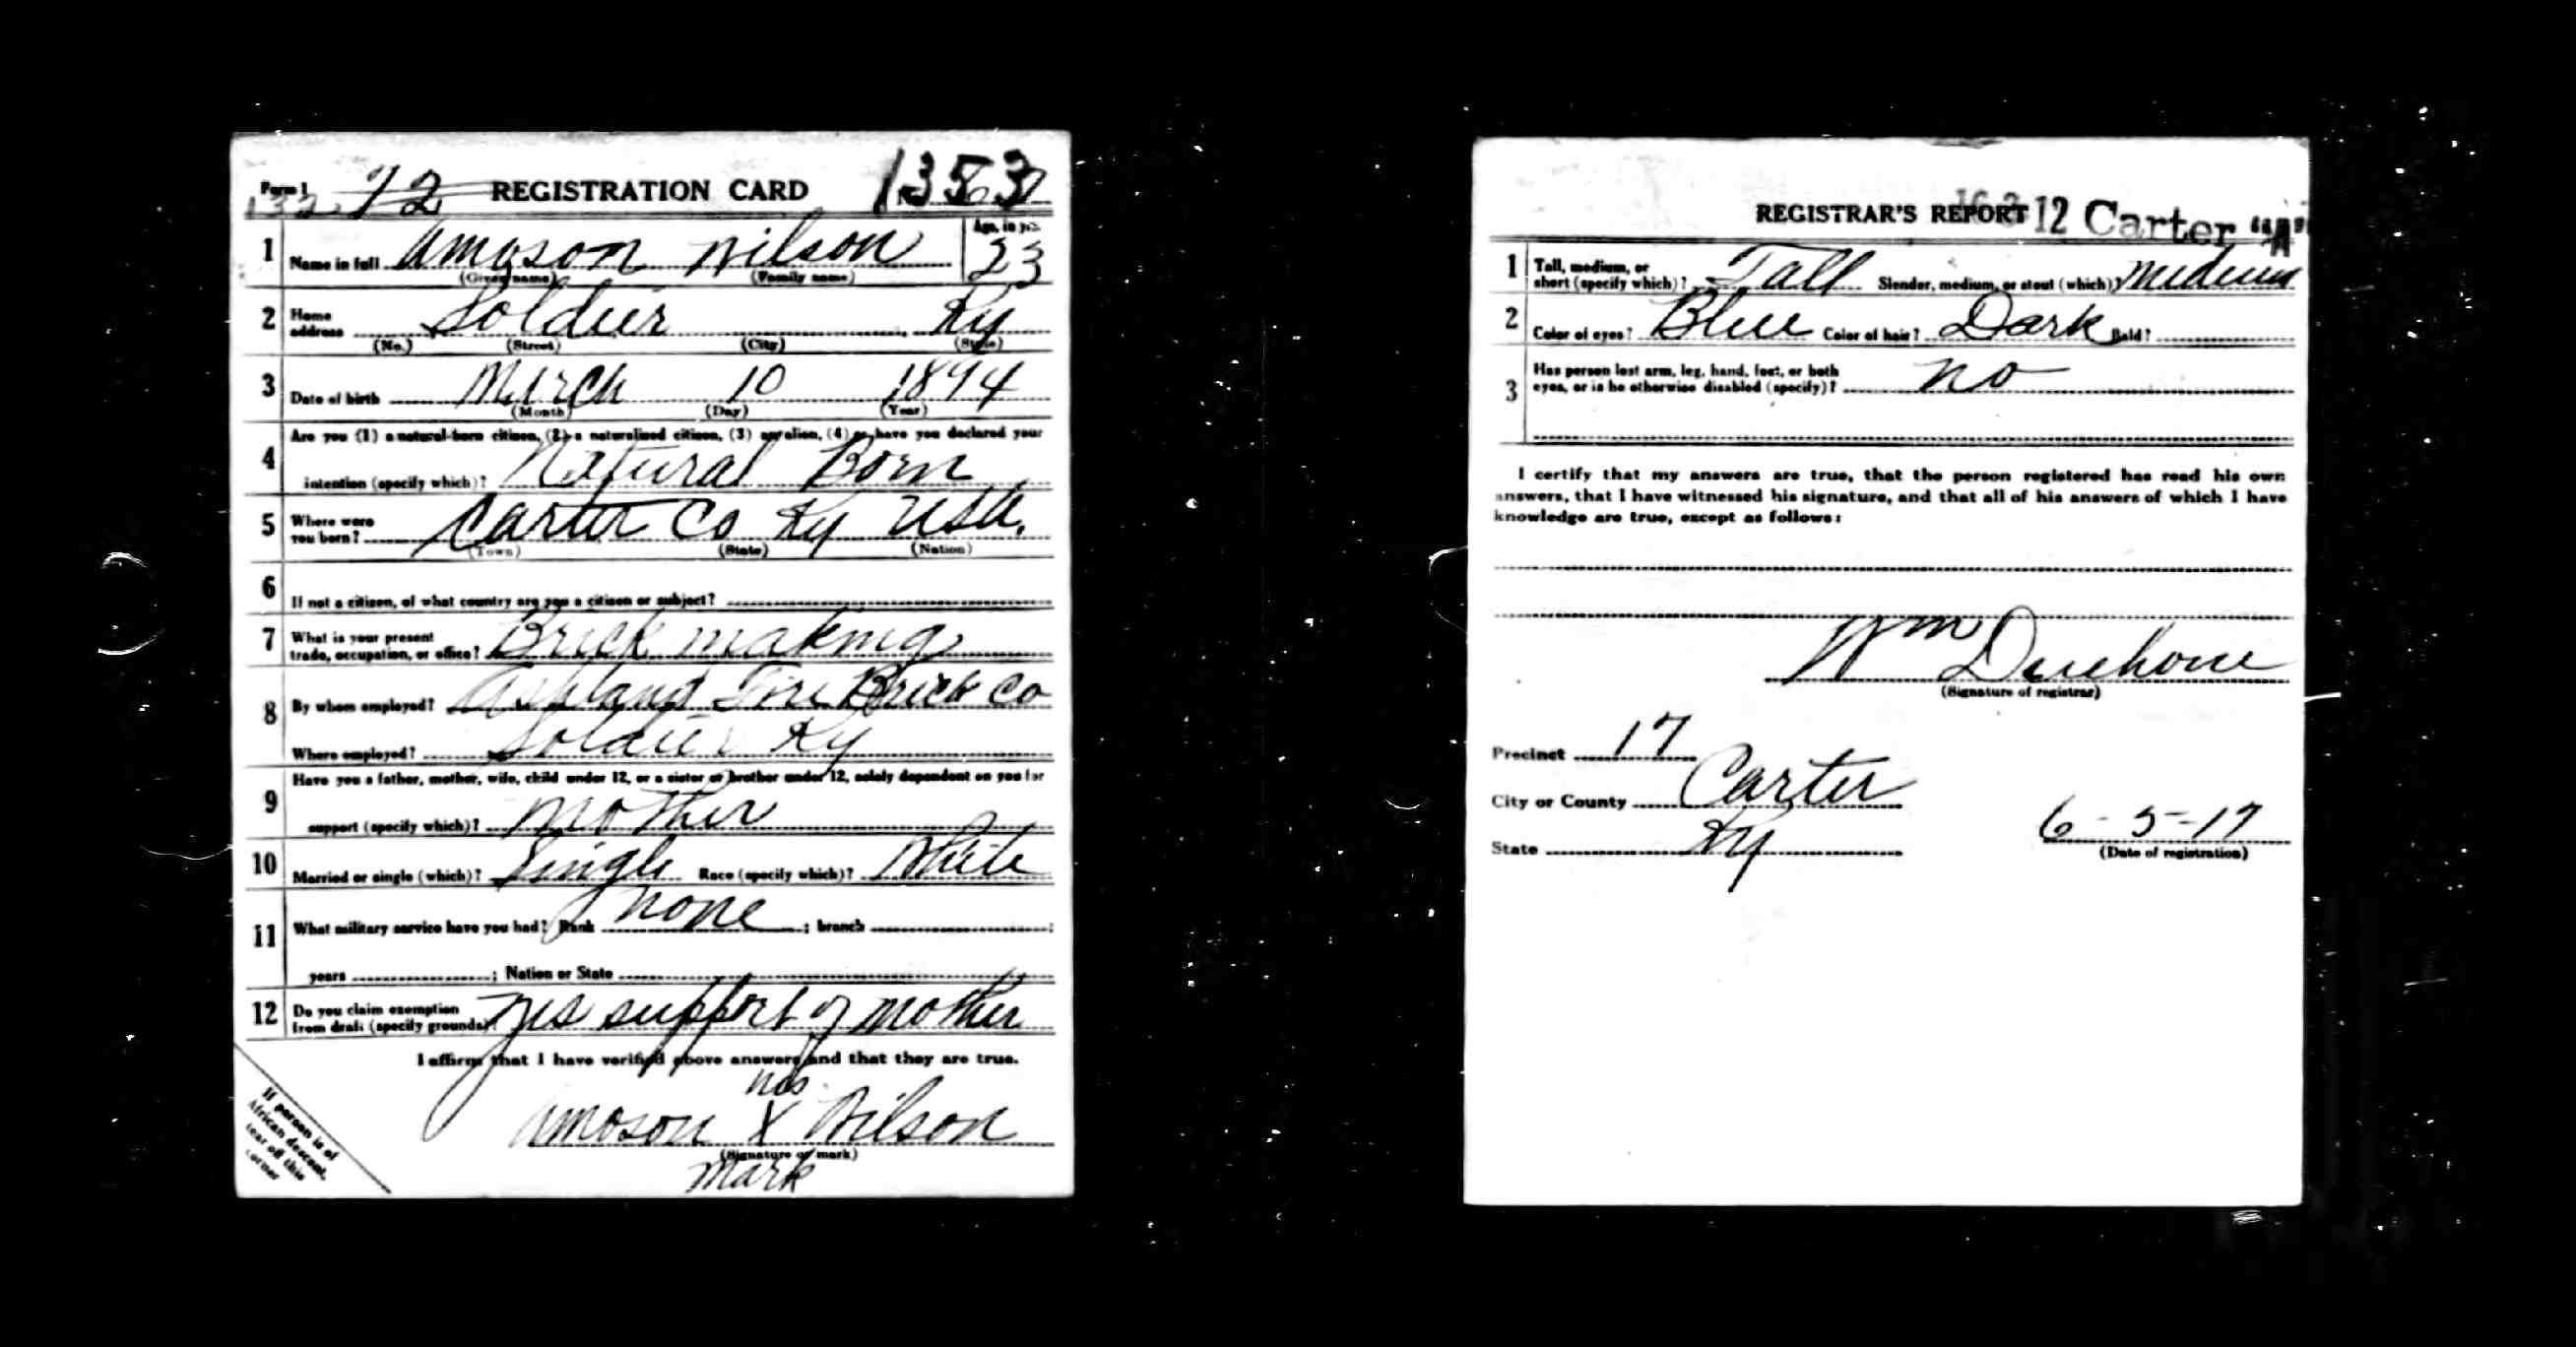 Form 1
72 REGISTRATION CARD
1 Name in full Amoson Wilson Age, in yrs. 23
(Given name) (Family name)
2 Home address Soldier Ky
(No.) (Street) (City) (State)
3 Date of birth March 10 1894
(Month) (Day) (Year)
4 Are you (1) a natural-born citizen, (2) a naturalized citizen, (3) an alien, (4) or have you declared your
intention (specify which)? Natural Born
5 Where were you born? Carter Co Ky USA.
(Town) (State) (Nation)
6 If not a citizen, of what country are you a citizen or subject?
7 What is your present trade, occupation, or office? Brick making
8 By whom employed? Ashland Fire Brick Co
Where employed? Soldier Ky
9 Have you a father, mother, wife, child under 12, or a sister or brother under 12, solely dependent on you for
support (specify which)? Mother
10 Married or single (which)? Single Race (specify which)? White
11 What military service have you had? Rank none ; branch ;
years ; Nation or State
12 Do you claim exemption from draft (specify grounds)? Yes support of mother
I affirm that I have verified above answers and that they are true.
his
Amoson X Wilson
(Signature or mark)
Mark
If person is of
African descent,
tear off this
corner
REGISTRAR'S REPORT 12 Carter "A"
1 Tall, medium, or short (specify which)? Tall Slender, medium, or stout (which)? Medium
2 Color of eyes? Blue Color of hair? Dark Bald?
3 Has person lost arm, leg, hand, foot, or both
eyes, or is he otherwise disabled (specify)? no
I certify that my answers are true, that the person registered has read his own
answers, that I have witnessed his signature, and that all of his answers of which I have
knowledge are true, except as follows:
Wm
(Signature of registrar)
Precinct 17
City or County Carter
State Ky
6-5-17
(Date of registration)